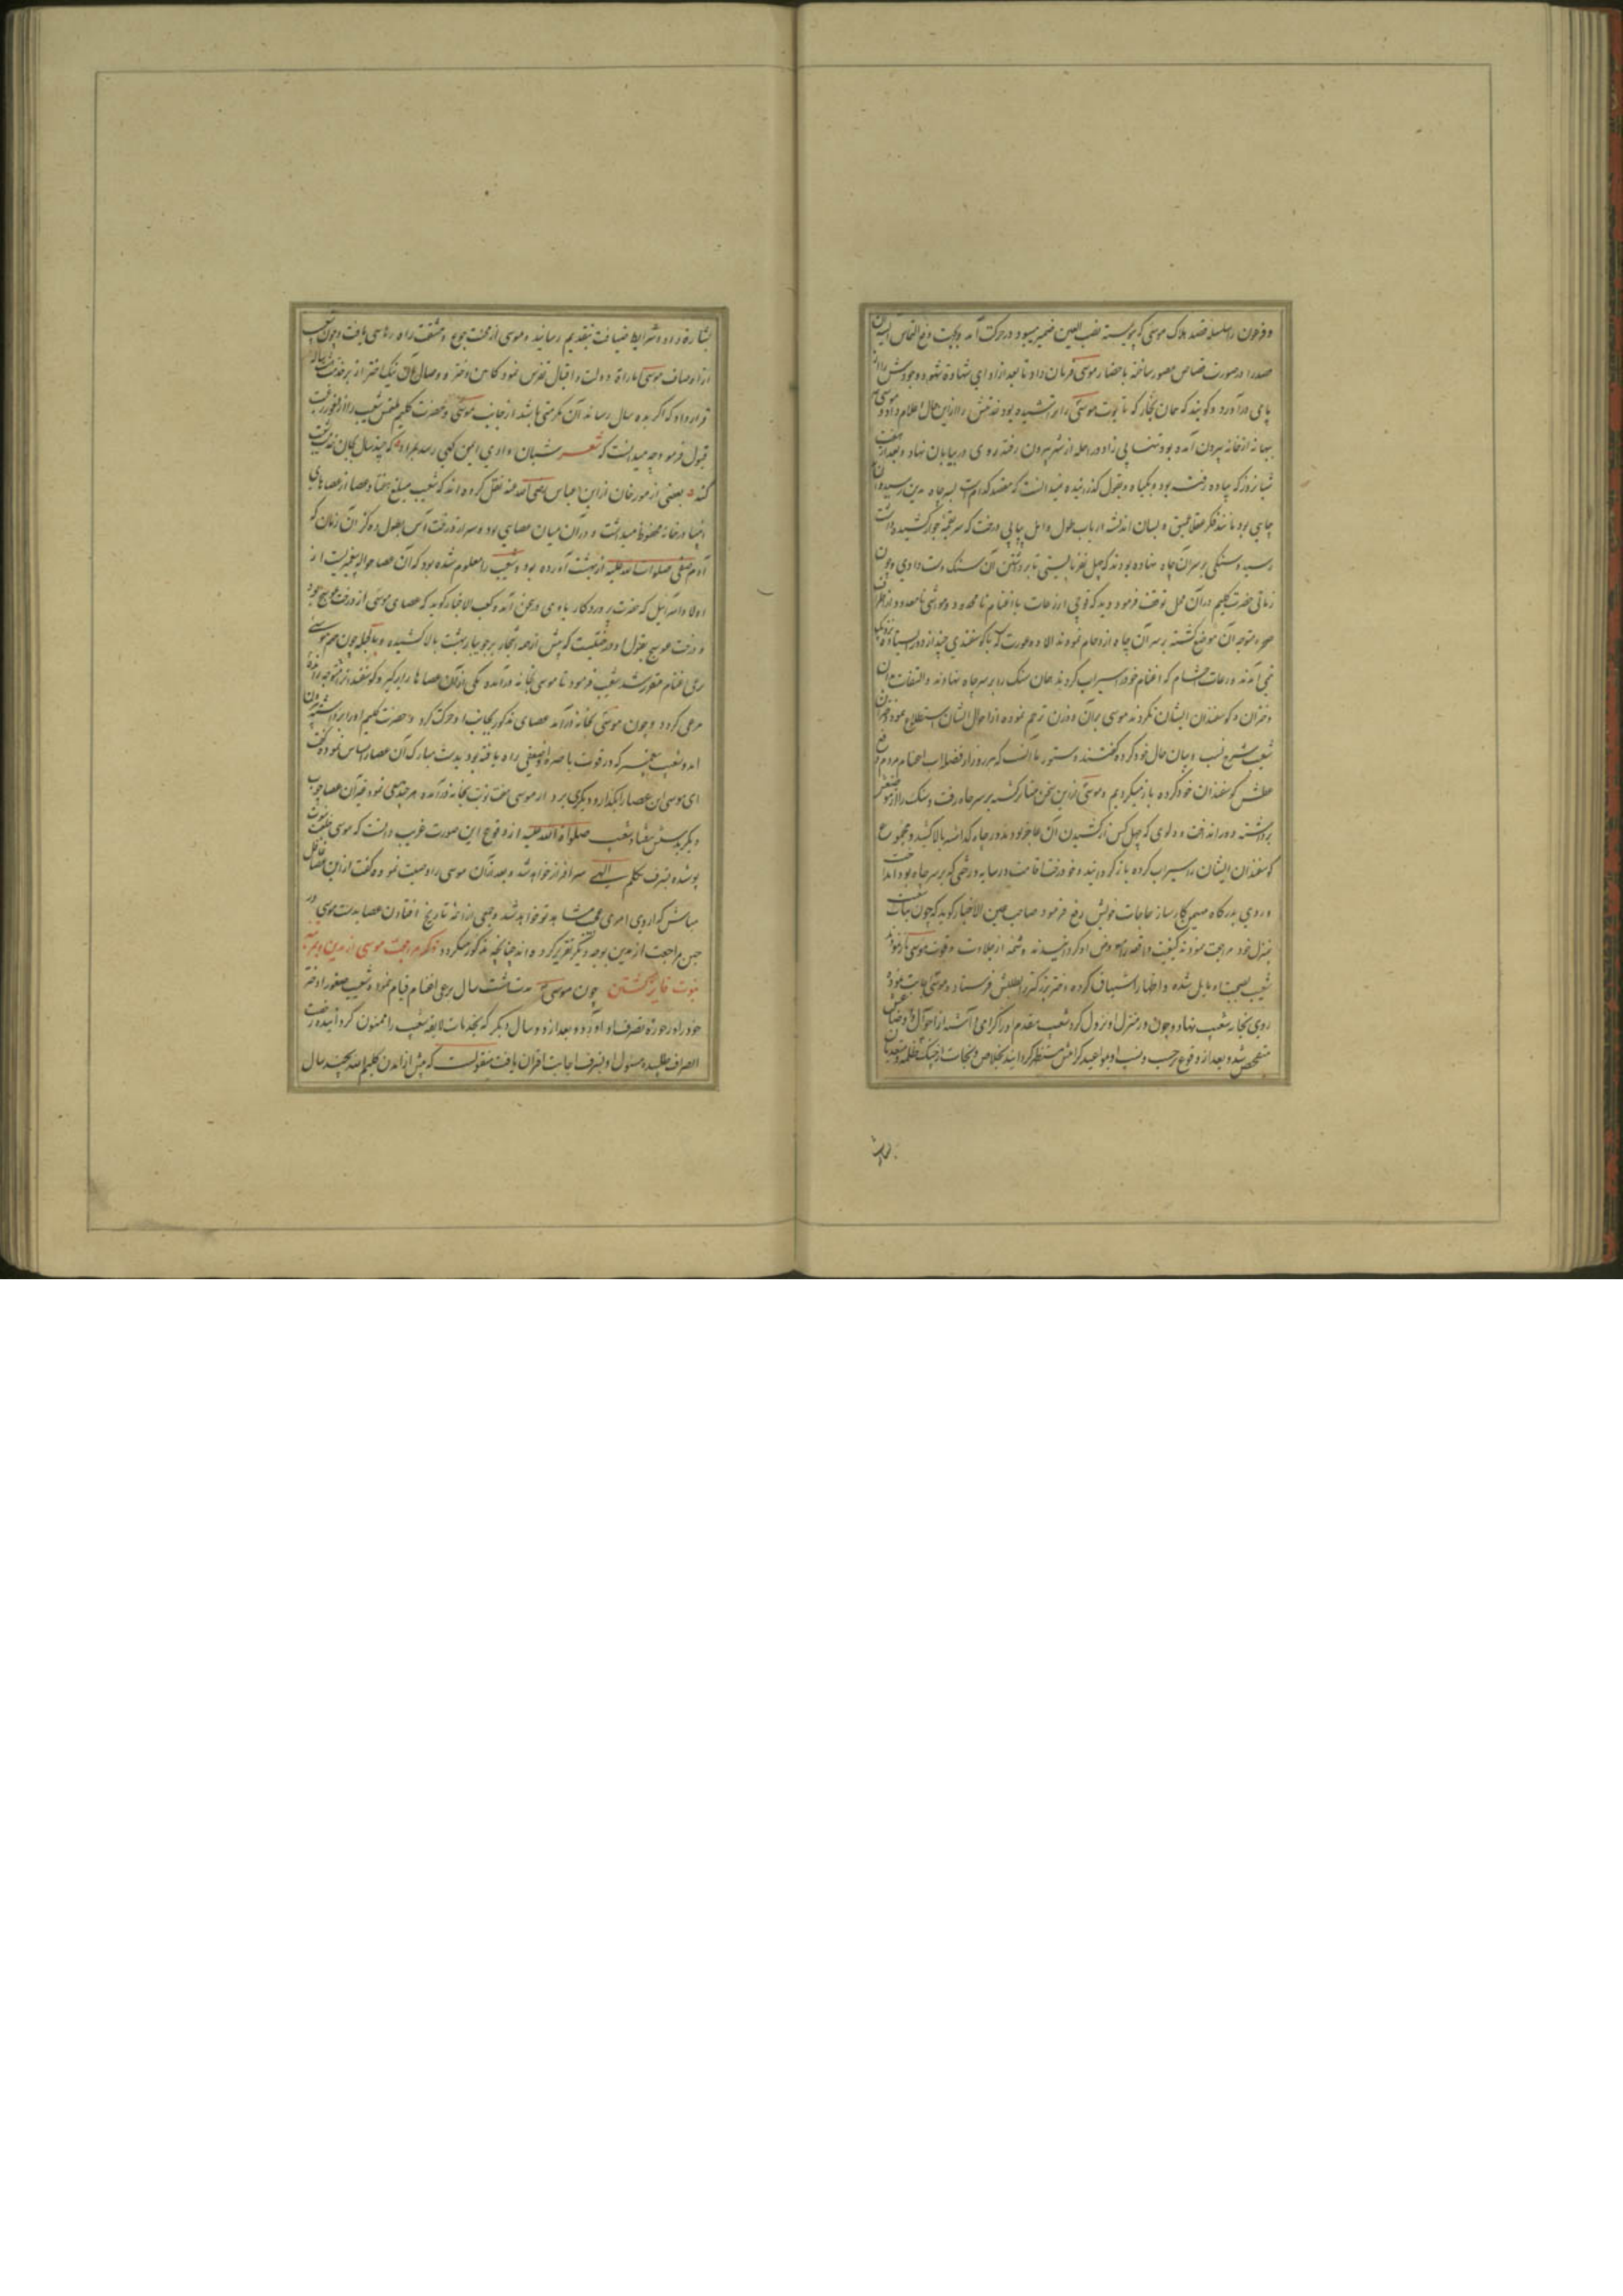 و فرعون را سلسله قصد هلاک موسی که پیوسته نصب العین ضمیر میبود در حرکت آمد و بجهت دفع التماس ایشان
صدرا در صورت قصاص مصور ساخته باحضار موسی فرمان داد تا بعد از ادای شهادة شهود وجودش را از
پای درآورد و گویند که همان نجار که تابوت موسی را تراشیده بود خدمتش را ازین حال اعلام داد و موسی
از خانه بیرون آمده بود تنها بی زاد و راحله از شهر بیرون رفته روی در بیابان نهاد و بعد از هفت
شبانروز که پیاده رفته بود و بگیاه و بقول گذرانیده نمیدانست که مقصد کدام است بسر چاه مدین رسید و آن
چاهی بود مانند فکر عقلا عمیق و بسان اندیشه ارباب طول و امل بی پایی درخت که سر بقعر خود کشیده داشت
رسید و سنگی بر سر آن چاه نهاده بودند که چهل نفر بایستی تا برداشتن آن سنک دست دادی و چون
زمانی حضرت کلیم در آن محل توقف فرمود دید که فوجی از رعات با اغنام نامحدود و مواشی نامعدود از اطراف
صحرا متوجه آن موضع گشته بر سر آن چاه ازدحام نمودند الا دو عورت که با گوسفندی چند از دور ایستاده نزدیک
نمی آمدند و رعات حشام که اغنام خود را سیراب کردند همان سنک را بر سر چاه نهادند و التفات بدان
دختران و گوسفندان ایشان نکردند موسی بر آن دو زن ترحم نموده از احوال ایشان استطلاع نمود دختران
شعیب شرح نسب و بیان حال خود کرده گفتند دستور ما آنست که هر روز از فضلاب اغنام مردم دفع
عطش گوسفندان خود کرده باز میگردیم و موسی ازین سخن متاثر گشته بر سر چاه رفت و سنک را از موضعش
برداشته دور انداخت و دلوی که چهل کس از کشیدن آن عاجز بودند در چاه گذاشته بالا کشید و مجموع
گوسفندان ایشان را سیراب کرده باز گردانید و خود رخت اقامت در سایه درختی که بر سر چاه بود انداخت
و روی بدرگاه مهیمن کارساز حاجات خویش رفع فرمود صاحب عین الاخبار گوید که چون بنات شعیب
بمنزل خود مراجعت نمودند کیفیت واقعه را معروض او گردانیدند و شمه از جلادت و قوت موسی باز نمودند
شعیب بصحبت او مایل شده و اظهار اشتیاق کرده دختر بزرگتر را بطلبش فرستاد و موسی اجابت نموده
روی بخانه شعیب نهاد و چون در منزل او نزول کرد شعیب مقدم او را گرامی داشته از احوال و اوضاعش
متفحص شد و بعد از وقوع حسب و نسب او بمواعید کرامتش مستظهر گردانید بخلاص و نجات از چنک ظلمه و متعدیان
بشارة داد و شرایط ضیافت بتقدیم رسانید و موسی از محنت جوع و مشقت راه رهایی یافت و چون شعیب
از اوصاف موسی امارة دولت و اقبال تفرس نمود کابین دختر و وصال آن نیک اختر را بر خدمت هشت ساله
قرار داد که اگر بده سال رساند آن مکرمتی باشد از جانب موسی و حضرت کلیم ملتمس شعیب را از وفور رغبت
قبول فرمود چه میدانست که شعر شبان وادی ایمن گهی رسد بمراد که چند سال بجان خدمت شعیب
کند بعضی از مورخان از ابن عباس رضی الله عنه نقل کرده اند که شعیب مبلغ هفتاد عصا از عصاهای
انبیا در خانه محفوظ میداشت و در آن میان عصایی بود و سر از درخت آس بطول ده گز آن زمان که
آدم صفی صلوات الله علیه از بهشت آورده بود و شعیب را معلوم شده بود که آن عصا حواله پیغمبریست از
اولاد اسرائیل که حضرت پروردگار با وی در سخن آید و کعب الاخبار گوید که عصای موسی از درخت عوسج بود
و درخت عوسج بقول او درختیست که پیش از همه اشجار بر جویبار بهشت بالا کشیده و بالجمله چون مهم موسی
رعی اغنام مقرر شد شعیب فرمود تا موسی بخانه درآمده یکی از آن عصاها را برگیرد و گوسفندانرا متوجه
مرعی گردد و چون موسی بخانه درآمد عصای مذکور بجانب او حرکت کرد و حضرت کلیم او را برداشته بیرون
آمد و شعیب پیغمبر که در قوت باصره او ضعفی راه یافته بود بدست مبارک آن عصا را مساس نموده گفت
ای موسی این عصا را بگذار و دیگری بردار موسی هفت نوبت بخانه درآمده هر چند سعی نمود غیر آن عصا چوب
دیگر بدستش نیفتاد شعیب صلواة الله علیه از وقوع این صورت غریب دانست که موسی خلعت نبوت
پوشیده بشرف تکلم الهی سرافراز خواهد شد و بعد از آن موسی را وصیت نموده گفت ازین عصا غافل
مباش که از وی امور عجیب مشاهد تو خواهد شد و جمعی از ائمه تاریخ افتادن عصا بدست موسی در
حین مراجعت از مدین بوجه دیگر تقریر کرده اند چنانچه مذکور میگردد ذکر مراجعت موسی از مدین و بمرتبه
نبوت فایز گشتن چون موسی مدت هشت سال برعی اغنام قیام نمود و شعیب صفورا دختر
خود را در حوزه تصرف او آورد و بعد از دو سال دیگر که بخدمات لایقه شعیب را ممنون گردانید رخصت
انصراف طلبیده مسئول او بشرف اجابت اقتران یافت منقولست که پیش از آمدن کلیم الله بچند سال